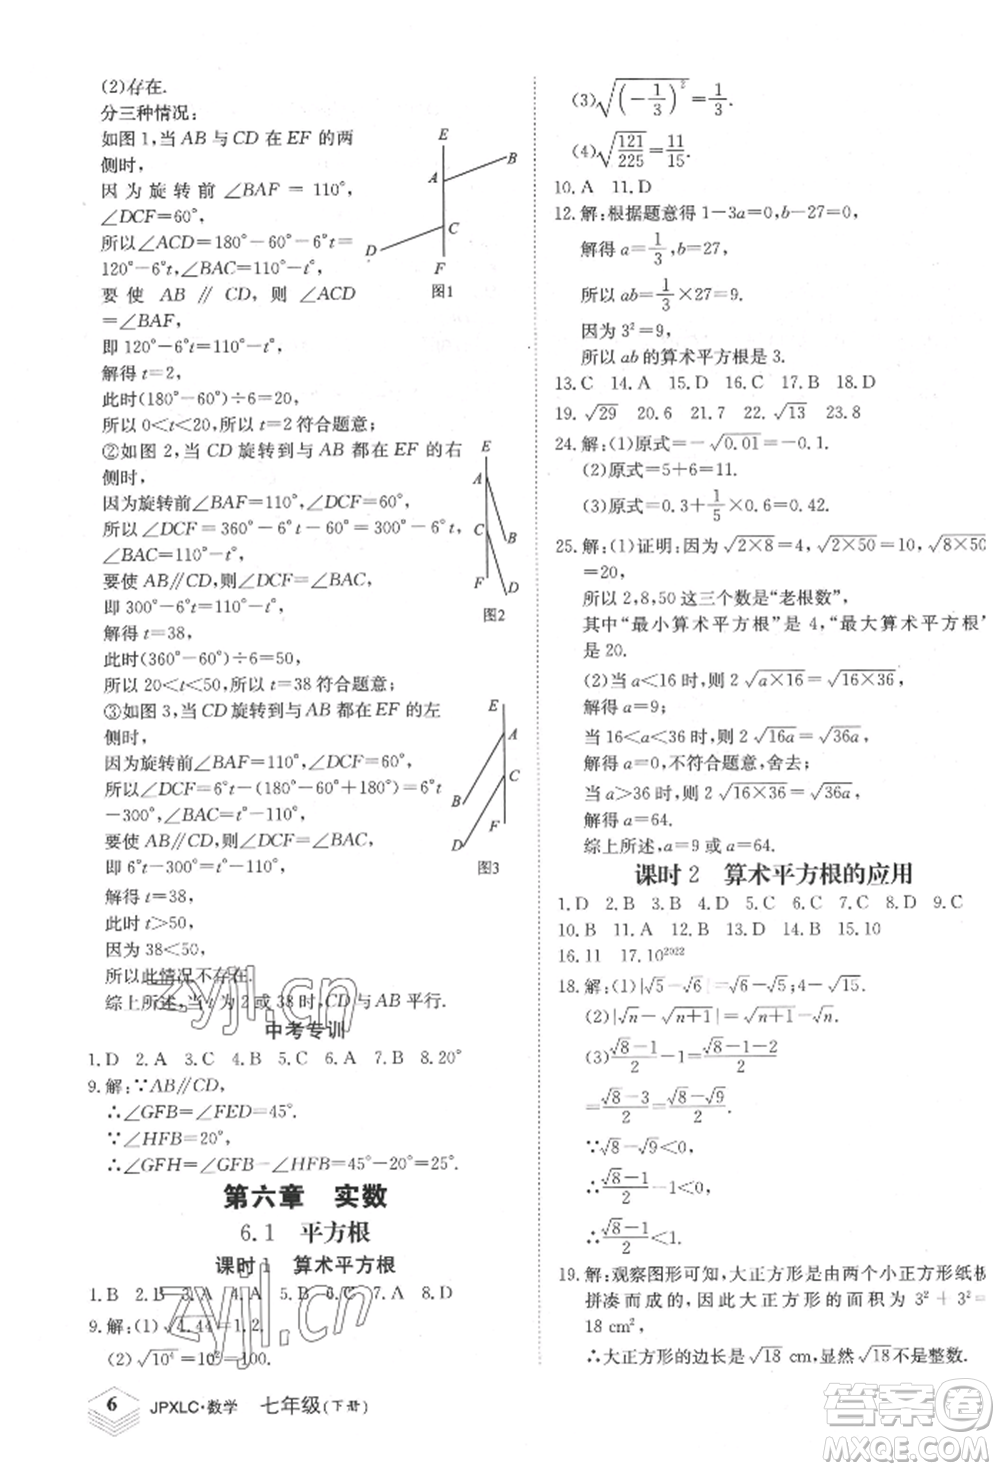 (2)存在.
分三种情况:
如图 1,当 AB 与 CD 在 EF 的两
侧时,
因为旋转前∠BAF=110°,
∠DCF=60°,
所以∠ACD=180°-60°-6°t=
120°-6°t,∠BAC=110°-t°,
要使 AB∥CD,则∠ACD
=∠BAF,
即 120°-6°t=110°-t°,
解得 t=2,
此时(180°-60°)÷6=20,
所以 0<t<20,所以 t=2 符合题意;
②如图 2,当 CD 旋转到与 AB 都在 EF 的右
侧时,
因为旋转前∠BAF=110°,∠DCF=60°,
所以∠DCF=360°-6°t-60°=300°-6°t,
∠BAC=110°-t°,
要使 AB∥CD,则∠DCF=∠BAC,
即 300°-6°t=110°-t°,
解得 t=38,
此时(360°-60°)÷6=50,
所以 20<t<50,所以 t=38 符合题意;
③如图 3,当 CD 旋转到与 AB 都在EF 的左
侧时,
因为旋转前∠BAF=110°,∠DCF=60°,
所以∠DCF=6°t-(180°-60°+180°)=6°t
-300°,∠BAC=t°-110°,
要使 AB∥CD,则∠DCF=∠BAC,
即 6°t-300°=t°-110°,
解得 t=38,
此时 t>50,
因为 38<50,
所以此情况不存在.
综上所述,当 t 为 2 或 38 时,CD 与 AB 平行.
E
B
A
C
D
F
图1
E
A
C
B
F
D
图2
E
A
C
B
F
D
图3
中考专训
1.D 2.A 3.C 4.B 5.C 6.A 7.B 8.20°
9.解:∵AB∥CD,
∴∠GFB=∠FED=45°.
∵∠HFB=20°,
∴∠GFH=∠GFB-∠HFB=45°-20°=25°.
第六章 实数
6.1 平方根
课时 1 算术平方根
1.B 2.B 3.A 4.A 5.A 6.C 7.A 8.D
9.解:(1)√1.44=1.2.
(2)√10⁴=10²=100.
(3)√(-1/3)²=1/3.
(4)√121/225=11/15.
10.A 11.D
12.解:根据题意得 1-3a=0,b-27=0,
解得 a=1/3,b=27,
所以 ab=1/3×27=9.
因为 3²=9,
所以 ab 的算术平方根是 3.
13.C 14.A 15.D 16.C 17.B 18.D
19.√29 20.6 21.7 22.√13 23.8
24.解:(1)原式=-√0.01=-0.1.
(2)原式=5+6=11.
(3)原式=0.3+1/5×0.6=0.42.
25.解:(1)证明:因为√2×8=4,√2×50=10,√8×50
=20,
所以 2,8,50 这三个数是“老根数”,
其中“最小算术平方根”是 4,“最大算术平方根”
是 20.
(2)当 a<16 时,则 2√a×16=√16×36,
解得 a=9;
当 16<a<36 时,则 2√16a=√36a,
解得 a=0,不符合题意,舍去;
当 a>36 时,则 2√16×36=√36a,
解得 a=64.
综上所述,a=9 或 a=64.
课时 2 算术平方根的应用
1.D 2.B 3.B 4.D 5.C 6.C 7.C 8.D 9.C
10.B 11.A 12.B 13.B 14.D 15.10
16.11 17.10²⁰²²
18.解:(1)|√5-√6|=√6-√5;4-√15.
(2)|√n-√n+1|=√n+1-√n.
(3)(√8-1)/2-1=(√8-1-2)/2
=(√8-3)/2=(√8-√9)/2.
∵√8-√9<0,
∴(√8-1)/2-1<0,
∴(√8-1)/2<1.
19.解:观察图形可知,大正方形是由两个小正方形纸板
拼凑而成的,因此大正方形的面积为 3²+3²=
18 cm²,
∴大正方形的边长是√18 cm,是不是整数.
6 JPXLC·数学 七年级(下册)
zyjl.cn
zyjl.cn
答案圈
MXQE.COM